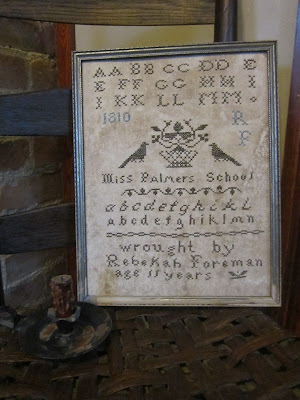 AA BB CC DD E
E FF GG HH I
I KK LL MM .
1810 R
F
Miss Palmers School
abcdefghikl
abcdefghiklmn
wrought by
Rebekah Foreman
age 11 years